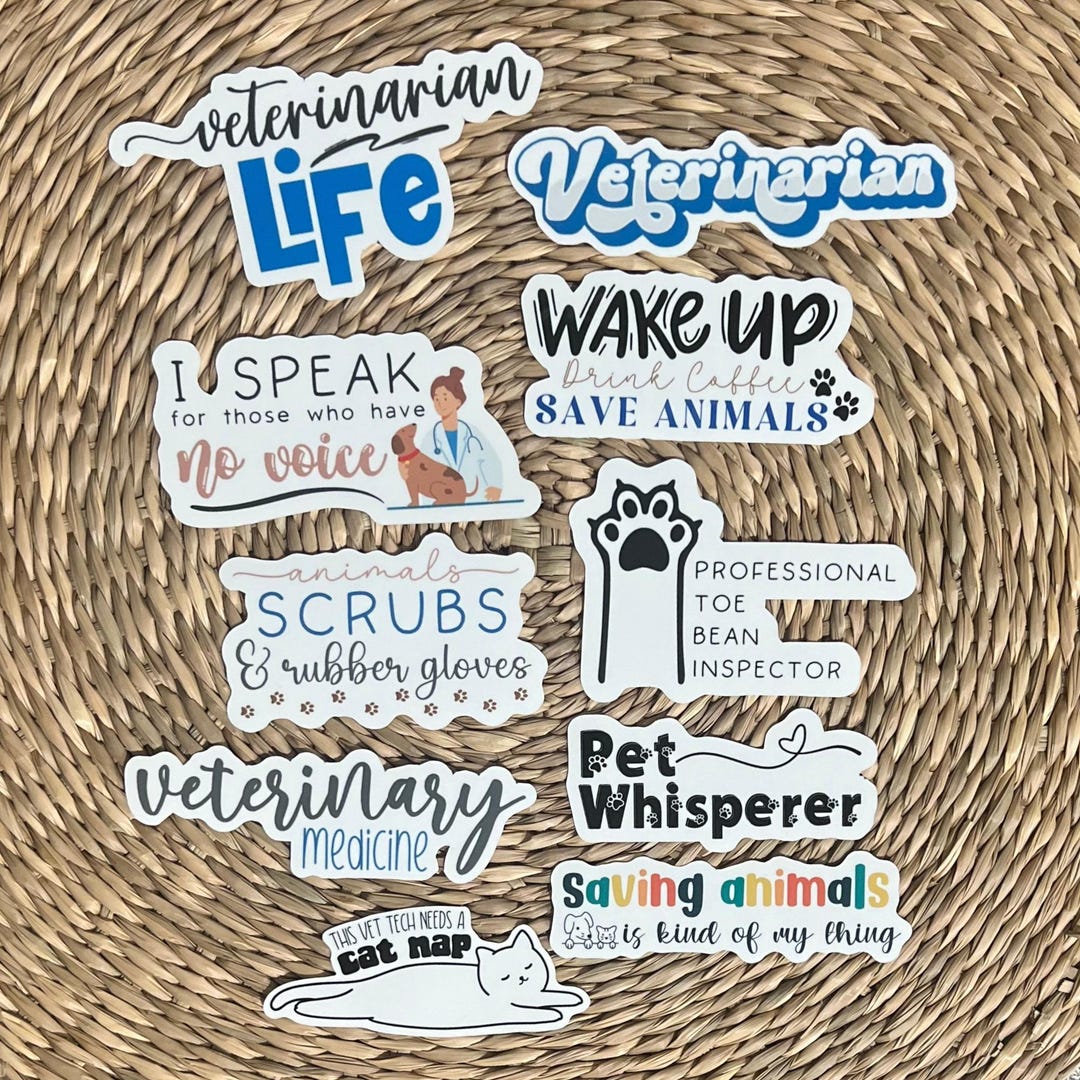 veterinarian
LiFe
Veterinarian
WAKe UP
Drink Coffee
SAVE ANIMALS
I SPEAK
for those who have
no voice
PROFESSIONAL
TOE
BEAN
INSPECTOR
animals
SCRUBS
& rubber gloves
Pet
Whisperer
veterinary
Medicine
saving animals
is kind of my thing
THIS VET TECH NEEDS A
cat nap